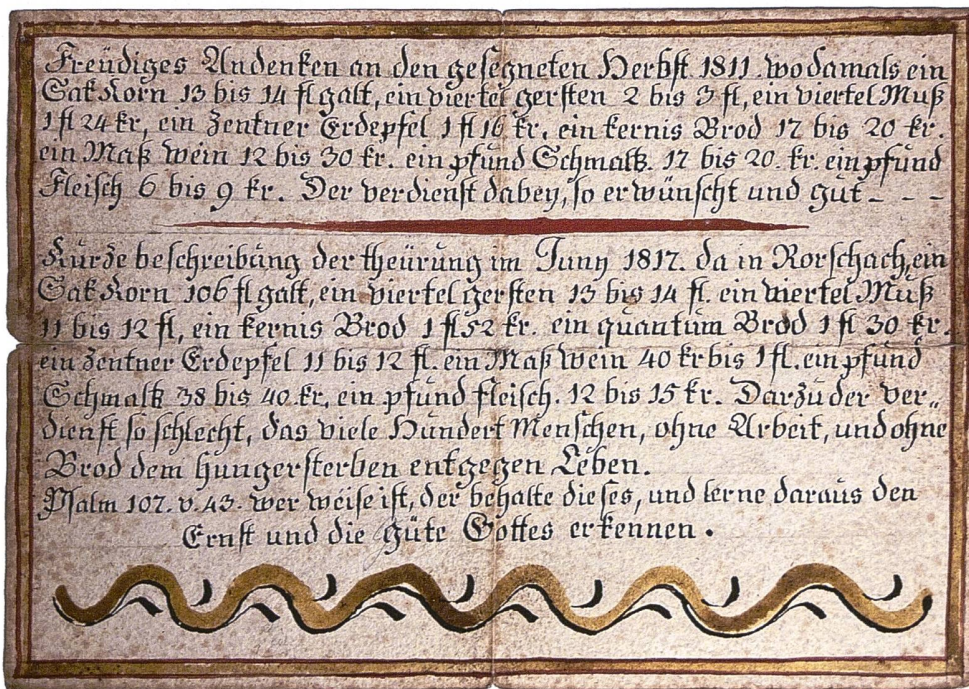 Freüdiges Andenken an den gesegneten Herbst 1811. wo damals ein
Sak Korn 13 bis 14 fl galt, ein viertel gersten 2 bis 3 fl, ein viertel Muß
1 fl 24 kr, ein Zentner Erdepfel 1 fl 16 kr. ein kernis Brod 17 bis 20 kr.
ein Maß wein 12 bis 30 kr. ein pfund Schmaltz. 17 bis 20. kr. ein pfund
Fleisch 6 bis 9 kr. Der verdienst dabey, so erwünscht und gut - - -
Kurze beschreibung der theürung im Juny 1817. da in Rorschach, ein
Sak Korn 106 fl galt, ein viertel gersten 13 bis 14 fl. ein viertel Muß
11 bis 12 fl, ein kernis Brod 1 fl 52 kr. ein quantum Brod 1 fl 30 kr.
ein Zentner Erdepfel 11 bis 12 fl. ein Maß wein 40 kr bis 1 fl. ein pfund
Schmaltz 38 bis 40 kr. ein pfund fleisch. 12 bis 15 kr. Darzu der ver„
dienst so schlecht, das viele Hundert Menschen, ohne Arbeit, und ohne
Brod dem hungersterben entgegen Leben.
Psalm 107. v. 43. wer weise ist, der behalte dieses, und lerne daraus den
Ernst und die güte Gottes erkennen.